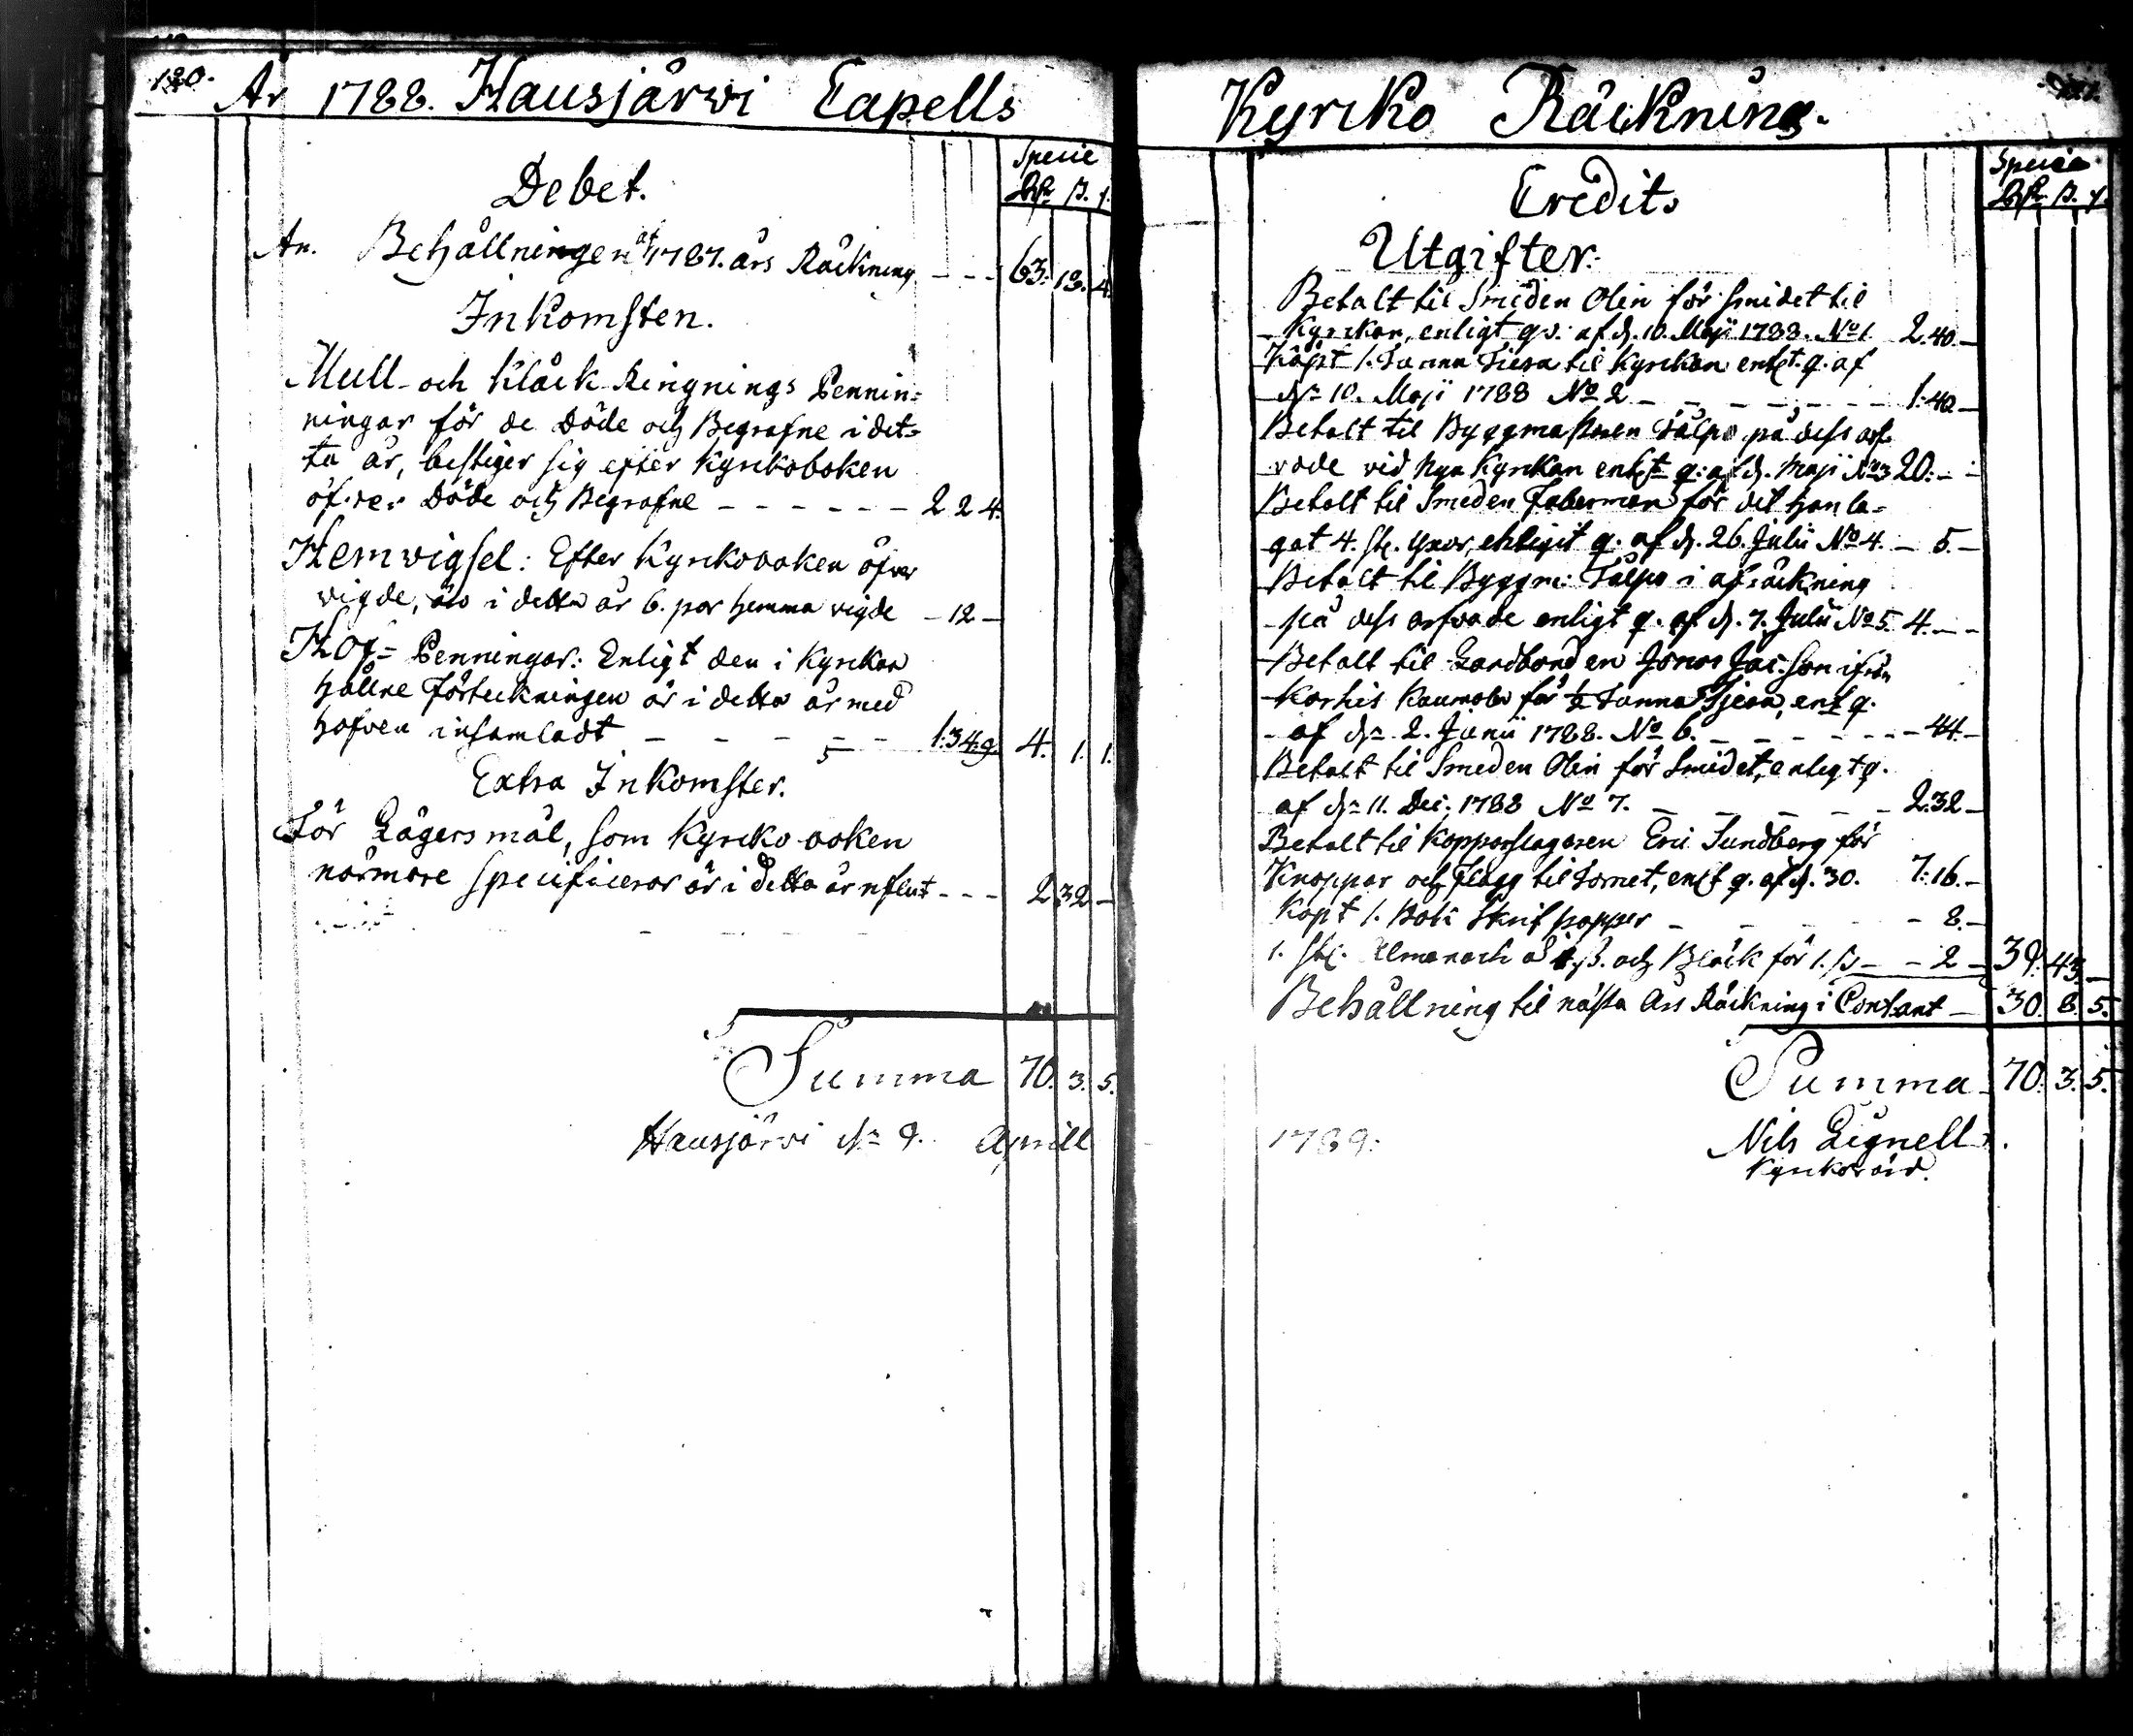 120.
År 1788. Hausjärwi Capells
Specie
Rdr ß. r.
Debet.
An. Behållningen af 1787. års Räckning --- 63. 18. 4.
Inkomsten.
Mull- och Kläck Ringnings Pennin=
ningar för de Döde och Begrafne i det=
ta år, bestiger sig efter Kyrckoboken
öfver Döde och Begrafne ------ 2 24.
Hemvigsel: Efter Kyrckoboken öfver
vigde, äro i detta år 6. par hemma vigde - 12 -
Hof= Penningar: Enligt den i Kyrckan
hållne Förteckningen är i detta år med
hofven insamladt ----- 1. 34. 9. 4. 1. 1.
Extra Inkomster.
För Lägersmål, som Kyrcko-boken
närmare specificerar är i detta år influt --- 2 32 -
Summa 70. 3. 5.
Hausjärvi dn 9. Aprill
Kyrcko Räckning.
Specie
Rdr ß. r.
Credit.
Utgifter.
Betalt til Smeden Olin för smidet til
Kyrckan, enligt qv: af d. 10. Maji 1788. No 1 2. 40. -
Köpt 1. Tunna Tiera til Kyrckan enlt. q. af
dn 10. Maji 1788 No 2 ------ 1. 40 -
Betalt til Byggmästaren Tälpo på dess arf
vode vid Nya Kyrckan enlt q: af d. Maji No 3 20. - -
Betalt til Smeden Faberman för det han la=
gat 4. st. yxor, enligit q. af d. 26. Julii No 4. - 5. -
Betalt til Byggm: Tälpo i afräckning
på dess arfvode enligt q. af d. 7. Julii No 5. 4. - -
Betalt til Landbonden Jonas Jac. Son ifrån
Karhis Kaumola för ½ Tunna Tjera, enlt q.
af dn 2. Junii 1788. No 6. ------ 44. -
Betalt til Smeden Olin för Smidet, enligt q.
af dn 11. Dec. 1788 No 7. ----- 2. 32 -
Betalt til Kopparslagaren Eric Sundberg för
Knoppar och Flagg til Tornet, enlt q. af d. 30. 7. 16. -
Köpt 1. Bok Skrif papper ---- 8. -
1. st. Almanach a 1 ß. och Bläck för 1. ß -- 2 - 39. 43. -
Behållning til nästa Års Räckning i Contant - 30. 8. 5.
Summa 70. 3. 5.
1789.
Nils Lignell
Kyrckovärd.